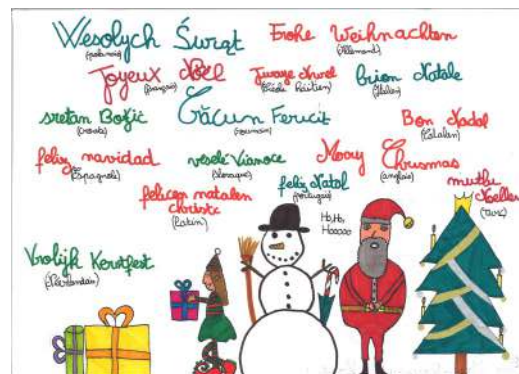 Wesolych Świąt
(polonais)
Frohe Weihnachten
(Allemand)
Joyeux Noël
(français)
Jwaye Nwel
(Créole Haïtien)
brion Natale
(Italien)
sretan Božić
(croate)
Crăcun Fericit
(roumain)
Bon Nadal
(Catalan)
feliz navidad
(Espagnole)
veselé Vianoce
(slovaque)
Mary Chrismas
(anglais)
felicem natalem
christi
(Latin)
feliz Natal
(portugais)
mutlu
Noeller
(Turc)
Ho, Ho,
Hooooo
Vrolijk Kerstfest
(Néerlandais)